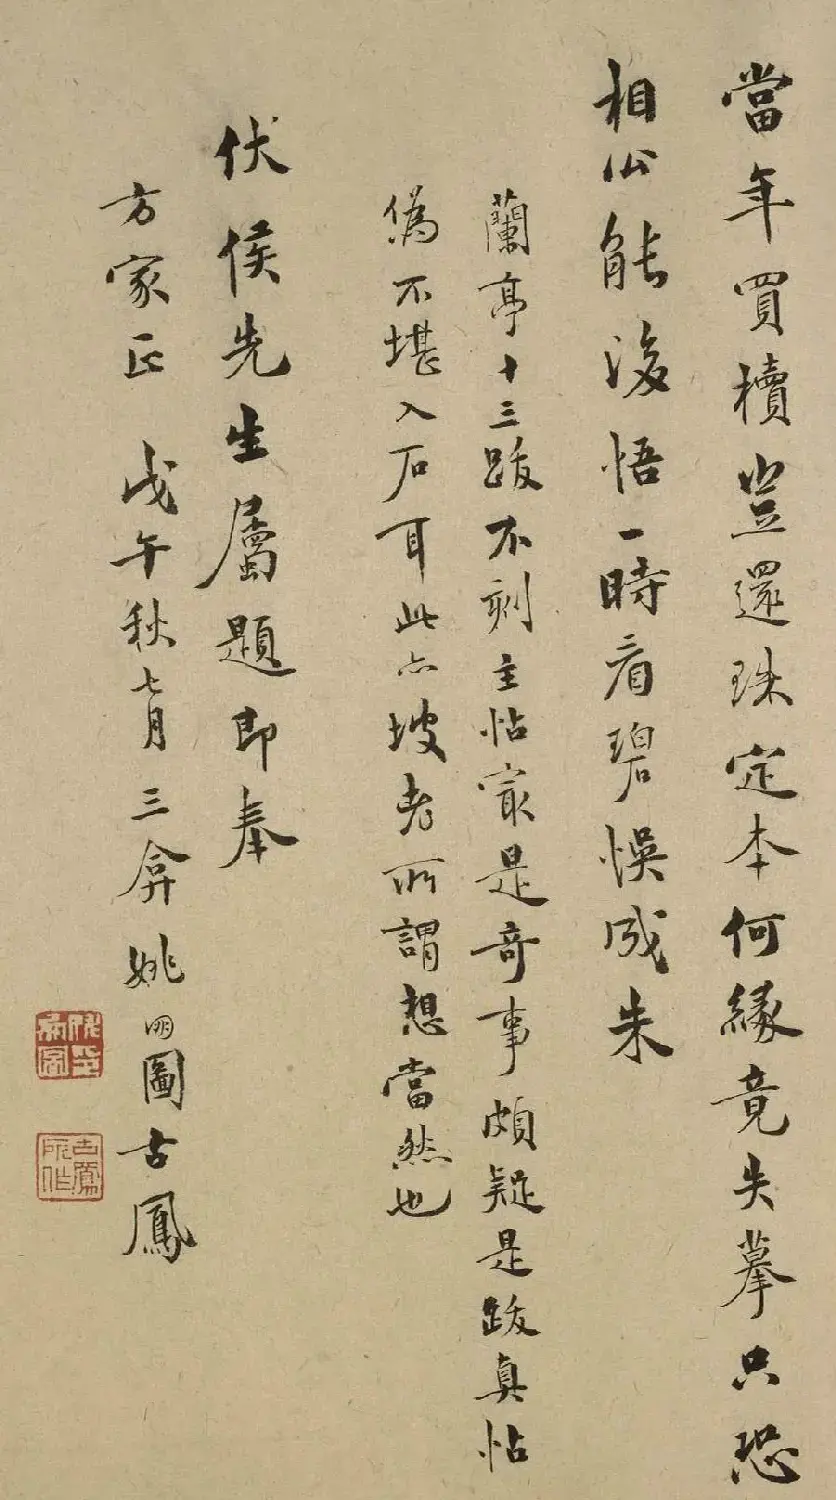 當年買櫝豈還珠定本何緣竟失摹只恐
相公能復悟一時看碧悞成朱
蘭亭十三跋不刻主帖㝡是奇事頗疑是跋真帖
偽不堪入石耳此亦坡老所謂想當然也
伏侯先生屬題即奉
方家正 戊午秋七月三弇姚朙圖古鳳